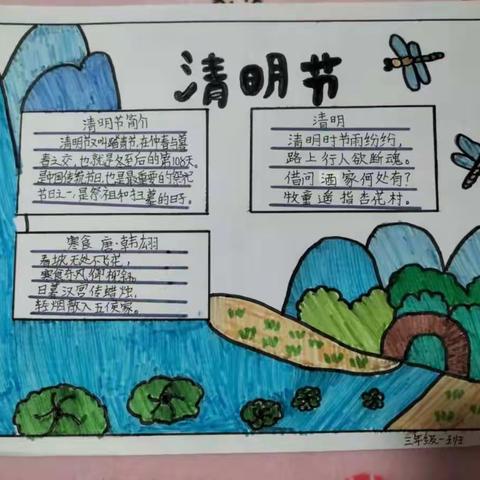 清明节
清明节简介
清明节又叫踏青节,在仲春与暮
春之交,也就是冬至后的第108天。
是中国传统节日,也是最重要的祭祀
节日之一,是祭祖和扫墓的日子。
清明
清明时节雨纷纷,
路上行人欲断魂。
借问酒家何处有?
牧童遥指杏花村。
寒食 唐·韩翃
春城无处不飞花,
寒食东风御柳斜。
日暮汉宫传蜡烛,
轻烟散入五侯家。
三年级一班